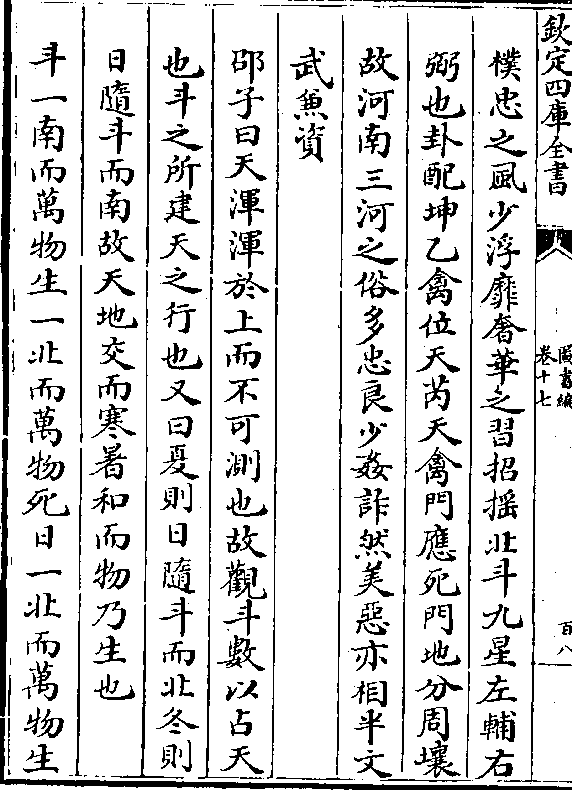 欽定四庫全書
圖書編
卷十七
百八
樸忠之風少浮靡奢華之習招揺北斗九星左輔右
弼也卦配坤乙禽位天芮天禽門應死門地分周壤
故河南三河之俗多忠良少姦詐然美惡亦相半文
武兼資
邵子曰天渾渾於上而不可測也故觀斗數以占天
也斗之所建天之行也又曰夏則日隨斗而北冬則
日隨斗而南故天地交而寒暑和而物乃生也
斗一南而萬物生一北而萬物死日一北而萬物生